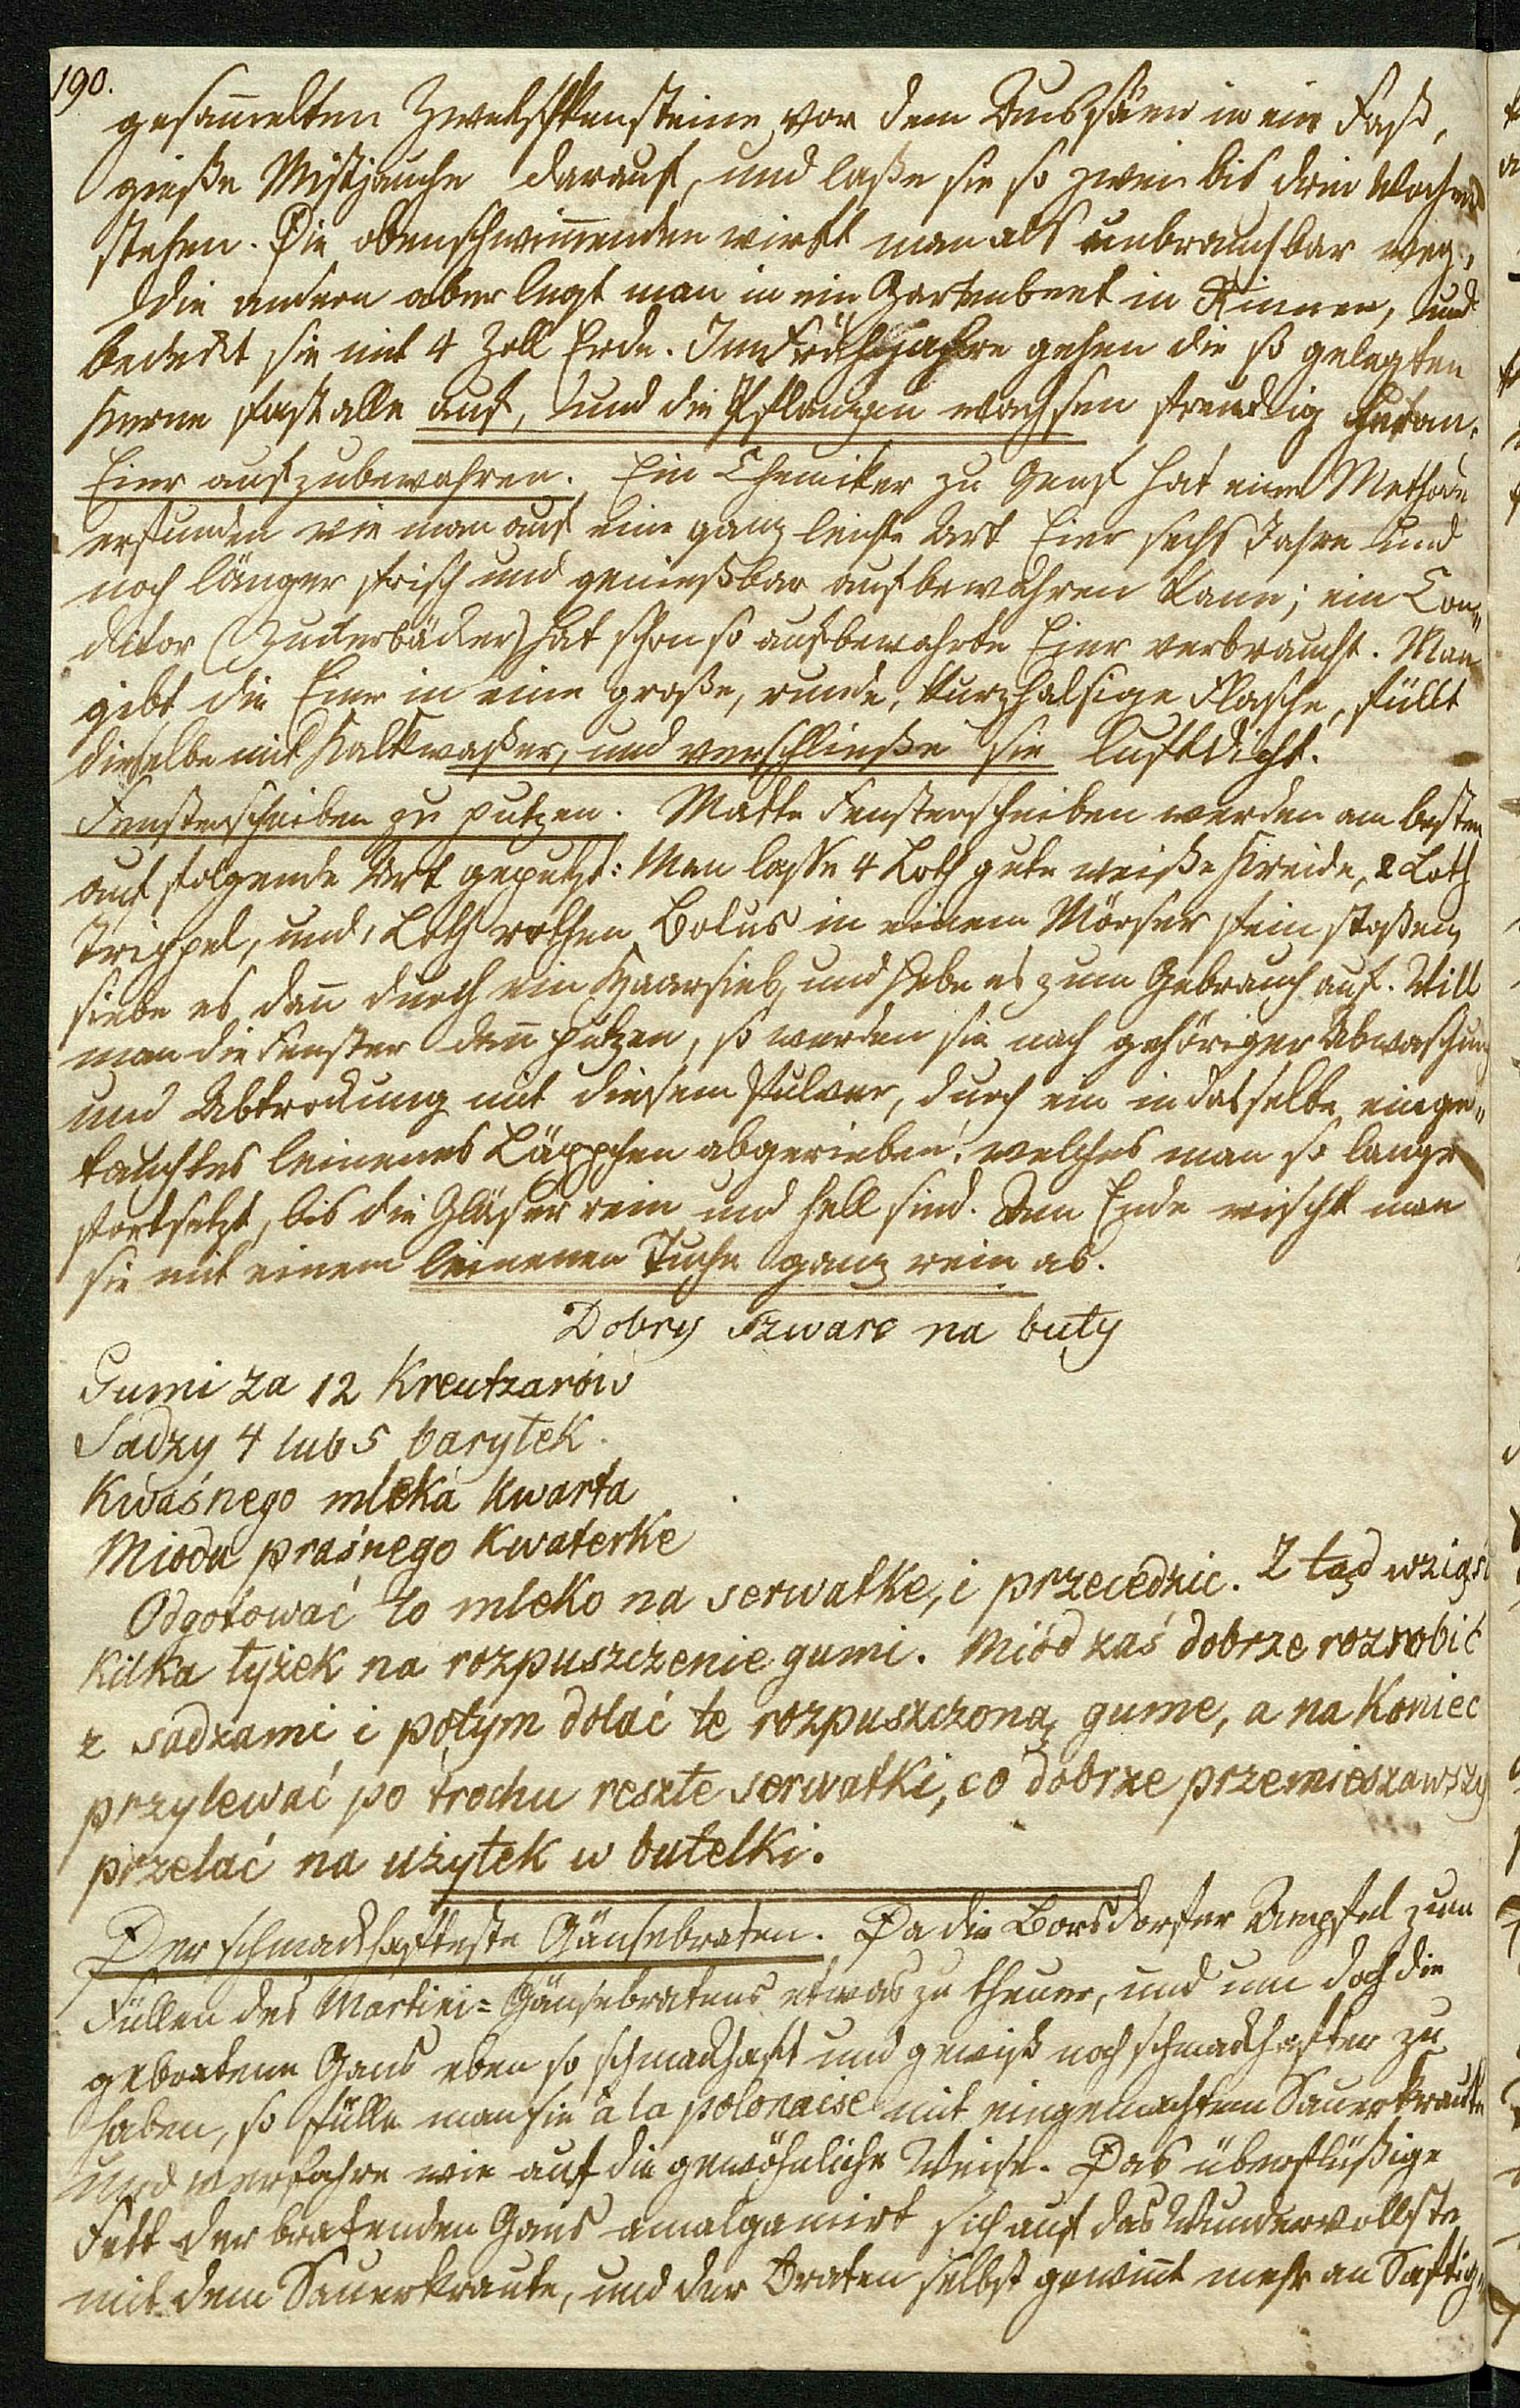 190.
gesam̄elten Zwetschkensteine vor dem Aussäen in ein Faß,
gieße Mistjauche darauf, und laße sie so zwei bis drei Wochen
stehen. Die obenschwim̄enden wirft man als unbrauchbar weg,
die andern aber legt man in ein Gartenbeet in Rinnen, und
bedeckt sie mit 4 Zoll Erde. Im Frühjahre gehen die so gelegten
Kerne fast alle auf, und die Pflanzen wachsen freudig heran.
Eier aufzubewahren. Ein Chemiker zu Genf hat eine Methode
erfunden wie man auf eine ganz leichte Art Eier sechs Jahre und
noch länger frisch und genießbar aufbewahren kann; ein Con=
ditor (Zuckerbäcker) hat schon so aufbewahrte Eier verbraucht. Man
gibt die Eier in eine große, runde, kurzhalsige Flasche, füllt
dieselbe mit Kalkwaßer, und verschließe sie luftdicht.
Fensterscheiben zu putzen. Matte Fensterscheiben werden am besten
auf folgende Art geputzt: Man lasse 4 Loth gute weiße Kreide, 2 Loth
Trippel, und 1 Loth rothen Bolus in einem Mörser fein stoßen,
siebe es dan̄ durch ein Haarsieb, und hebe es zum Gebrauch auf. Will
man die Fenster dan̄ putzen, so werden sie nach gehöriger Abwaschung
und Abtrocknung mit diesem Pulver, durch ein in dasselbe einge=
tauchtes leinenes Läppchen abgerieben, welches man so lange
fortsetzt, bis die Gläser rein und hell sind. Am Ende wischt man
sie mit einem leinenen Tuche ganz rein ab.
Dobry szwarc na buty
Gumi za 12 Kreutzarów
Sadzy 4 lub 5 baryłek.
Kwaśnego mleka kwarta
Miodu praśnego Kwaterke
Odgotować to mleko na serwatke, i przecedzic. Z tąd wziąść
kilka łyżek na rozpuszczenie gumi. Miód zaś dobrze rozrobić
z sadzami i potym dolać te rozpuszczoną gume, a na Koniec
przylewać po trochu reszte serwatki, co dobrze przemieszawszy
przelać na użytek w butelki.
Der schmackhafteste Gänsebraten. Da die Borsdorfer Aepfel zum
Füllen des Martini=Gänsebratens etwas zu theuer, und um doch die
gebratene Gans eben so schmackhaft und gewiß noch schmackhafter zu
haben, so fülle man sie à la polonaise mit eingemachtem Sauerkraute
und verfahre wie auf die gewöhnliche Weise. Das überflüßige
Fett der bratenden Gans amalgamirt sich auf das Wundervollste
mit dem Sauerkraute, und der Braten selbst gewin̄t mehr an Saftig=